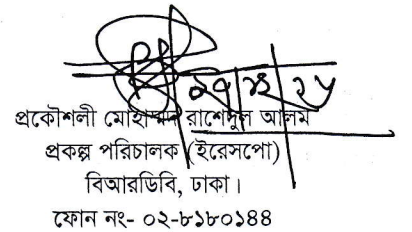 প্রকৌশলী মোহাম্মদ রাশেদুল আলম
প্রকল্প পরিচালক (ইরেসপো)
বিআরডিবি, ঢাকা।
ফোন নং- ০২-৮১৮০১৪৪